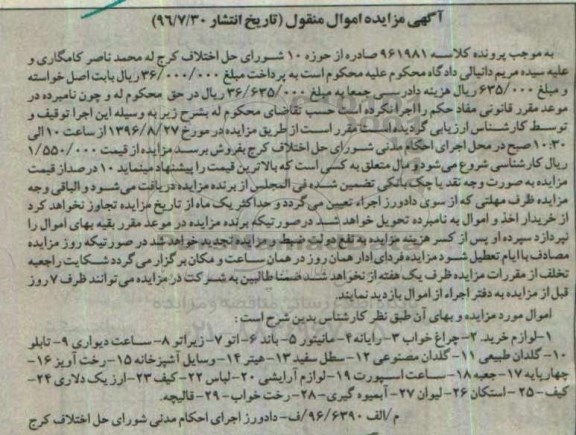 آگهی مزایده اموال منقول (تاریخ انتشار ۹۶/۷/۳۰)
به موجب پرونده کلاسه ۹۶۱۹۸۱ صادره از حوزه ۱۰ شورای حل اختلاف کرج له محمد ناصر کامگاری و
علیه سیده مریم دانیالی دادگاه محکوم علیه محکوم است به پرداخت مبلغ ۳۶/۰۰۰/۰۰۰ ریال بابت اصل خواسته
و مبلغ ۶۳۵/۰۰۰ ریال هزینه دادرسی جمعا به مبلغ ۳۶/۶۳۵/۰۰۰ ریال در حق محکوم له و چون نامبرده در
موعد مقرر قانونی مفاد حکم را اجرا نکرده است حسب تقاضای محکوم له بشرح زیر به وسیله این اجرا توقیف و
توسط کارشناس ارزیابی گردیده است تا مقرر است از طریق مزایده در مورخ ۱۳۹۶/۸/۲۷ از ساعت ۱۰ الی
۱۰:۳۰ صبح در محل اجرای احکام مدنی شورای حل اختلاف کرج بفروش برسد مزایده از قیمت ۱/۵۵۰/۰۰۰
ریال کارشناسی شروع می شود و مال متعلق به کسی است که بالاترین قیمت را پیشنهاد مینماید ۱۰ درصد از قیمت
مزایده به صورت وجه نقد یا چک بانکی تضمین شده فی المجلس از برنده مزایده دریافت می شود و الباقی وجه
مزایده ظرف مهلتی که از سوی دادورز اجراء تعیین می گردد و حداکثر یک ماه از تاریخ مزایده تجاوز نخواهد کرد
از خریدار اخذ و اموال به نامبرده تحویل خواهد شد در صورتیکه برنده مزایده در موعد مقرر بقیه بهای اموال را
نپردازد سپرده او پس از کسر هزینه مزایده به نفع دولت ضبط و مزایده تجدید خواهد شد در صورتیکه روز مزایده
مصادف با ایام تعطیل شود مزایده فردای ادار همان روز در همان ساعت و مکان برگزار می گردد شکایت راجع به
تخلف از مقررات مزایده ظرف یک هفته از نخواهد شد ضمنا طالبین به شرکت در مزایده می توانند ظرف ۷ روز
قبل از مزایده به دفتر اجراء از اموال بازدید نمایند
اموال مورد مزایده و بهای آن طبق نظر کارشناس بدین شرح است:
۱-لوازم خرید. ۲-چراغ خواب ۳-رایانه ۴-مانیتور ۵-باند ۶-اتو ۷-زیراتو ۸-ساعت دیواری ۹-تابلو
۱۰-گلدان طبیعی ۱۱-گلدان مصنوعی ۱۲-سطل سفید ۱۳-هیتر ۱۴-وسایل آشپزخانه ۱۵-رخت آویز ۱۶-
چهارپایه ۱۷-جعبه ۱۸-ساعت اسپورت ۱۹-لوازم آرایشی ۲۰-لباس ۲۲-کیف ۲۳-ارز یک دلاری ۲۴-
کیف ۲۵-استکان ۲۶-لیوان ۲۷-آبمیوه گیری ۲۸-رخت خواب ۲۹-قالیچه.
م/الف ۹۶/۶۳۹۰/ف-دادورز اجرای احکام مدنی شورای حل اختلاف کرج